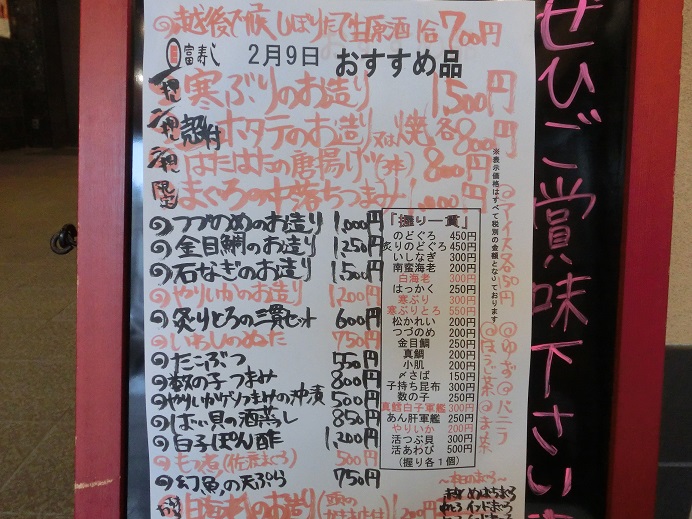 越後で候 しぼりたて生原酒 1合 700円
富寿し 2月9日 おすすめ品
寒ぶりのお造り 1,500円
殻付ホタテのお造り 又は焼 各800円
はたはたの唐揚げ 800円
限定 まぐろの中落ちつまみ
つづめのお造り 1,000円
金目鯛のお造り 1,250円
石なぎのお造り 1,500円
やりいかのお造り 1,200円
炙りとろの三貫セット 600円
いわしのぬた 750円
たこぶつ 550円
数の子つまみ 800円
やりいかゲソつまみの沖漬 500円
ばい貝の酒蒸し 850円
白子ぽん酢 1,200円
もつ煮(佐渡まぐろ) 500円
幻魚の天ぷら 750円
白海老のお造り
「握り一貫」
のどぐろ 450円
炙りのどぐろ 450円
いしなぎ 300円
南蛮海老 200円
白海老 300円
はっかく 300円
寒ぶり 300円
寒ぶりとろ 550円
松かれい 200円
つづのめ 200円
金目鯛 250円
真鯛 200円
小肌 200円
〆さば 150円
子持ち昆布 300円
数の子 300円
真鱈白子軍艦 300円
あん肝軍艦 300円
やりいか 200円
活つぶ貝 300円
活あわび 500円
(握り各1個)
※表示価格はすべて税別の金額となっております
◎アイス各150円
◎ゆず ◎バニラ
◎ほうじ茶 ◎まっ茶
～本日のまぐろ～
ぜひご賞味下さい